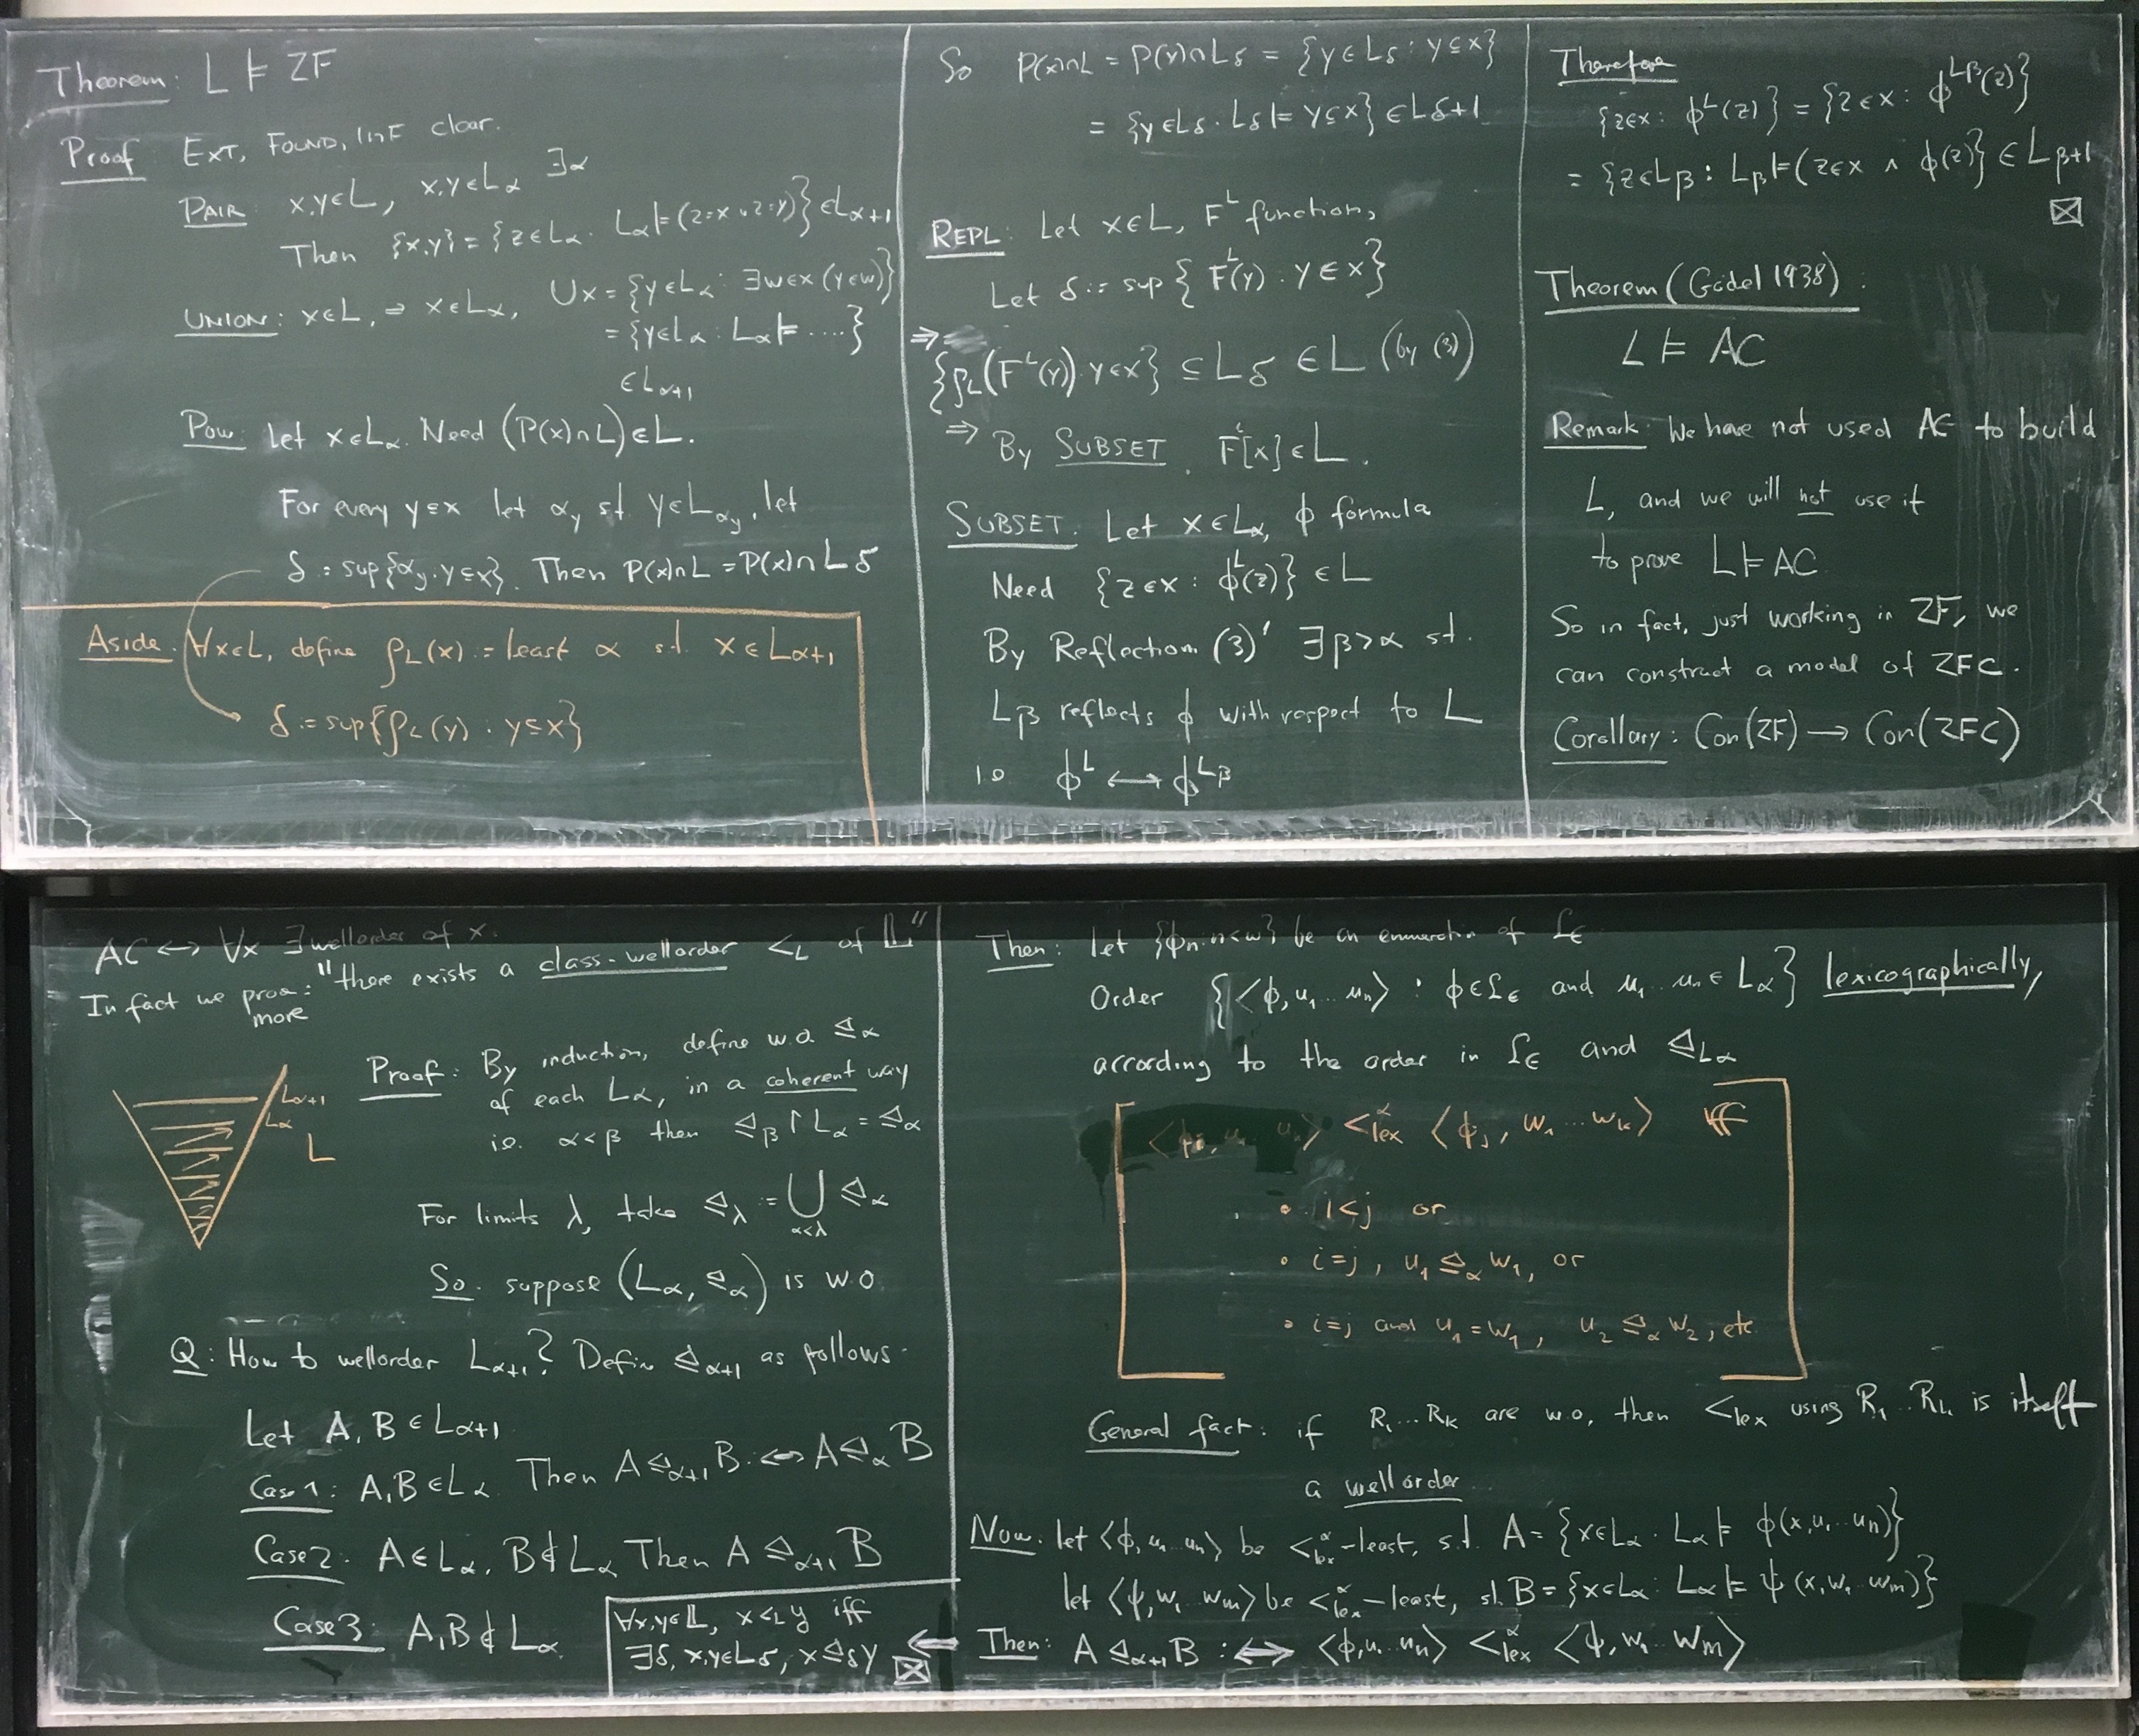 Theorem: L ⊨ ZF
Proof: EXT, FOUND, INF clear.
PAIR: x,y∈L, x,y∈Lα ∃α
Then {x,y} = {z∈Lα : Lα⊨(z=x ∨ z=y)} ∈Lα+1
UNION: x∈L, ⇒ x∈Lα, Ux = {y∈Lα : ∃w∈x (y∈w)}
= {y∈Lα : Lα⊨ ....}
∈Lα+1
Pow: Let x∈Lα. Need (P(x)∩L)∈L.
For every y⊆x let αy st. y∈Lαy, let
δ := sup{αy : y⊆x}. Then P(x)∩L = P(x)∩Lδ
Aside: ∀x∈L, define ρL(x) := least α st. x∈Lα+1
δ := sup{ρL(y) : y⊆x}
So P(x)∩L = P(y)∩Lδ = {y∈Lδ : y⊆x}
= {y∈Lδ : Lδ⊨ y⊆x} ∈Lδ+1
REPL: Let x∈L, F^L function,
Let δ := sup { F^L(y) : y∈x}
⇒
{ρL(F^L(y)) : y∈x} ⊆ Lδ ∈ L (by (3))
⇒ By SUBSET, F^L[x]∈L.
SUBSET: Let x∈Lα, ϕ formula
Need {z∈x : ϕ^L(z)} ∈L
By Reflection (3)' ∃β>α st.
Lβ reflects ϕ with respect to L
i.e. ϕ^L ⟷ ϕ^Lβ
Therefore
{z∈x : ϕ^L(z)} = {z∈x : ϕ^Lβ(z)}
= {z∈Lβ : Lβ⊨(z∈x ∧ ϕ(z)} ∈ Lβ+1
⊠
Theorem (Gödel 1938):
L ⊨ AC
Remark: We have not used AC to build
L, and we will not use it
to prove L⊨AC.
So in fact, just working in ZF, we
can construct a model of ZFC.
Corollary: Con(ZF) → Con(ZFC)
AC ⟷ ∀x ∃ wellorder of x.
In fact we prove more: "there exists a class-wellorder <L of 𝕃"
Lα+1
Lα
L
Proof: By induction, define w.o. ⊴α
of each Lα, in a coherent way
i.e. α<β then ⊴β↾Lα = ⊴α
For limits λ, take ⊴λ := ⋃α<λ ⊴α
So: suppose (Lα, ⊴α) is w.o.
Q: How to wellorder Lα+1? Define ⊴α+1 as follows:
Let A, B ∈ Lα+1
Case 1: A,B∈Lα. Then A ⊴α+1 B :⟷ A ⊴α B
Case 2: A∈Lα, B∉Lα Then A ⊴α+1 B
Case 3: A,B∉Lα
∀x,y∈𝕃, x<L y iff
∃δ, x,y∈Lδ, x⊴δ y ⊠
Then: let {ϕn : n<ω} be an enumeration of ℒ∈
Order {⟨ϕ, u1 ... un⟩ : ϕ∈ℒ∈ and u1 ... un∈Lα} lexicographically,
according to the order in ℒ∈ and ⊴Lα
⟨ϕi, u1 ... un⟩ <^α lex ⟨ϕj, w1 ... wk⟩ iff
• i<j or
• i=j, u1 ⊴α w1, or
• i=j and u1=w1, u2 ⊴α w2, etc
General fact: if R1...Rk are w.o, then <lex using R1...Rk is itself
a wellorder
Now: let ⟨ϕ, u1 ... un⟩ be <^α lex-least, s.t. A = {x∈Lα : Lα⊨ ϕ(x, u1 ... un)}
let ⟨ψ, w1 ... wm⟩ be <^α lex-least, st. B = {x∈Lα : Lα⊨ ψ(x, w1 ... wm)}
⇐ Then: A ⊴α+1 B :⟺ ⟨ϕ, u1 ... un⟩ <^α lex ⟨ψ, w1 ... wm⟩